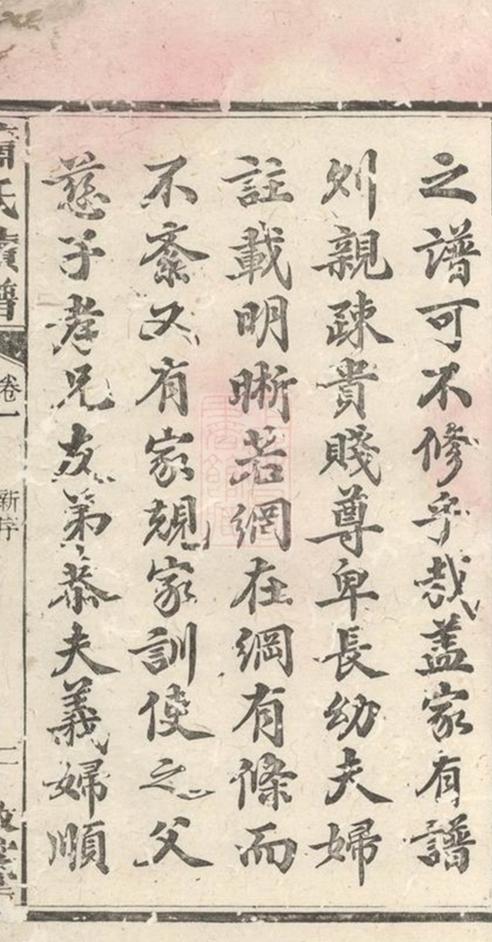 之譜可不修乎哉蓋家有譜
則親疎貴賤尊卑長幼夫婦
註載明晰若網在綱有條而
不紊又有家規家訓使之父
慈子孝兄友弟恭夫義婦順
氏續譜
卷一
新序
二